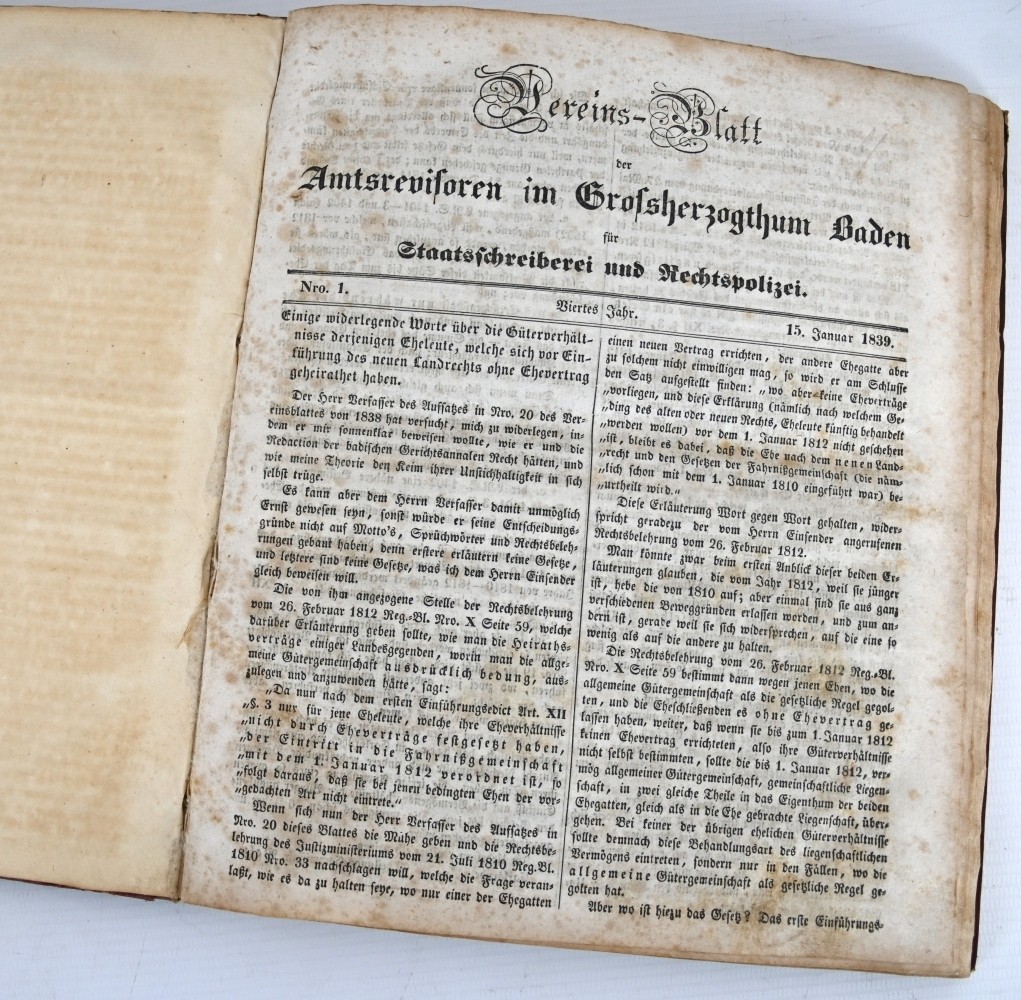 Vereins-Blatt
der
Amtsrevisoren im Grossherzogthum Baden
für
Staatsschreiberei und Rechtspolizei.
Nro. 1.
Viertes Jahr.
15. Januar 1839.
Einige widerlegende Worte über die Güterverhält-
nisse derjenigen Eheleute, welche sich vor Ein-
führung des neuen Landrechts ohne Ehevertrag
geheirathet haben.
Der Herr Verfasser des Aufsatzes in Nro. 20 des Ver-
einsblattes von 1838 hat versucht, mich zu widerlegen, in-
dem er mir sonnenklar beweisen wollte, wie er und die
Redaction der badischen Gerichtsannalen Recht hätten, und
wie meine Theorie den Keim ihrer Unstichhaltigkeit in sich
selbst trüge.
Es kann aber dem Herrn Verfasser damit unmöglich
Ernst gewesen seyn, sonst würde er seine Entscheidungs-
gründe nicht auf Motto's, Sprüchwörter und Rechtsbeleh-
rungen gebaut haben, denn erstere erläutern keine Gesetze,
und letztere sind keine Gesetze, was ich dem Herrn Einsender
gleich beweisen will.
Die von ihm angezogene Stelle der Rechtsbelehrung
vom 26. Februar 1812 Reg.-Bl. Nro. X Seite 59, welche
darüber Erläuterung geben sollte, wie man die Heiraths-
verträge einiger Landesgegenden, worin man die allge-
meine Gütergemeinschaft ausdrücklich bedung, aus-
zulegen und anzuwenden hätte, sagt:
„Da nun nach dem ersten Einführungsedict Art. XII
„§. 3 nur für jene Eheleute, welche ihre Eheverhältnisse
„nicht durch Eheverträge festgesetzt haben,
„der Eintritt in die Fahrnißgemeinschaft
„mit dem 1. Januar 1812 verordnet ist, so
„folgt daraus, daß sie bei jenen bedingten Ehen der vor-
„gedachten Art nicht eintrete.“
Wenn sich nun der Herr Verfasser des Aufsatzes in
Nro. 20 dieses Blattes die Mühe geben und die Rechtsbe-
lehrung des Justizministeriums vom 21. Juli 1810 Reg.Bl.
1810 Nro. 33 nachschlagen will, welche die Frage veran-
laßt, wie es da zu halten seye, wo nur einer der Ehegatten
einen neuen Vertrag errichten, der andere Ehegatte aber
zu solchem nicht einwilligen mag, so wird er am Schlusse
den Satz aufgestellt finden: „wo aber keine Eheverträge
„vorliegen, und diese Erklärung (nämlich nach welchem Ge-
„ding des alten oder neuen Rechts, Eheleute künftig behandelt
„werden wollen) vor dem 1. Januar 1812 nicht geschehen
„ist, bleibt es dabei, daß die Ehe nach dem neuen Land-
„recht und den Gesetzen der Fahrnißgemeinschaft (die näm-
„lich schon mit dem 1. Januar 1810 eingeführt war) be-
„urtheilt wird.“
Diese Erläuterung Wort gegen Wort gehalten, wider-
spricht geradezu der vom Herrn Einsender angerufenen
Rechtsbelehrung vom 26. Februar 1812.
Man könnte zwar beim ersten Anblick dieser beiden Er-
läuterungen glauben, die vom Jahr 1812, weil sie jünger
ist, hebe die von 1810 auf; aber einmal sind sie aus ganz
verschiedenen Beweggründen erlassen worden, und zum an-
dern ist, gerade weil sie sich widersprechen, auf die eine so
wenig als auf die andere zu halten.
Die Rechtsbelehrung vom 26. Februar 1812 Reg.-Bl.
Nro. X Seite 59 bestimmt dann wegen jenen Ehen, wo die
allgemeine Gütergemeinschaft als die gesetzliche Regel gegol-
ten, und die Eheschließenden es ohne Ehevertrag ge-
lassen haben, weiter, daß wenn sie bis zum 1. Januar 1812
keinen Ehevertrag errichteten, also ihre Güterverhältnisse
nicht selbst bestimmten, sollte die bis 1. Januar 1812, ver-
mög allgemeiner Gütergemeinschaft, gemeinschaftliche Liegen-
schaft, in zwei gleiche Theile in das Eigenthum der beiden
Ehegatten, gleich als in die Ehe gebrachte Liegenschaft, über-
gehen. Bei keiner der übrigen ehelichen Güterverhältnisse
sollte demnach diese Behandlungsart des liegenschaftlichen
Vermögens eintreten, sondern nur in den Fällen, wo die
allgemeine Gütergemeinschaft als gesetzliche Regel ge-
golten hat.
Aber wo ist hiezu das Gesetz? Das erste Einführungs-